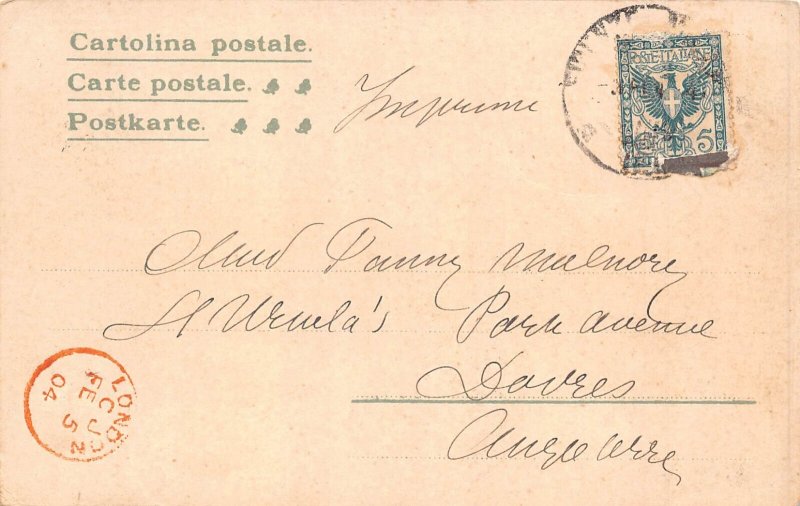 Cartolina postale.
Carte postale.
Postkarte.
Imprimé
POSTE ITALIANE
5
Fanny
St Ursula's Park Avenue
Dovres
Angleterre
LONDON
FE 5
04